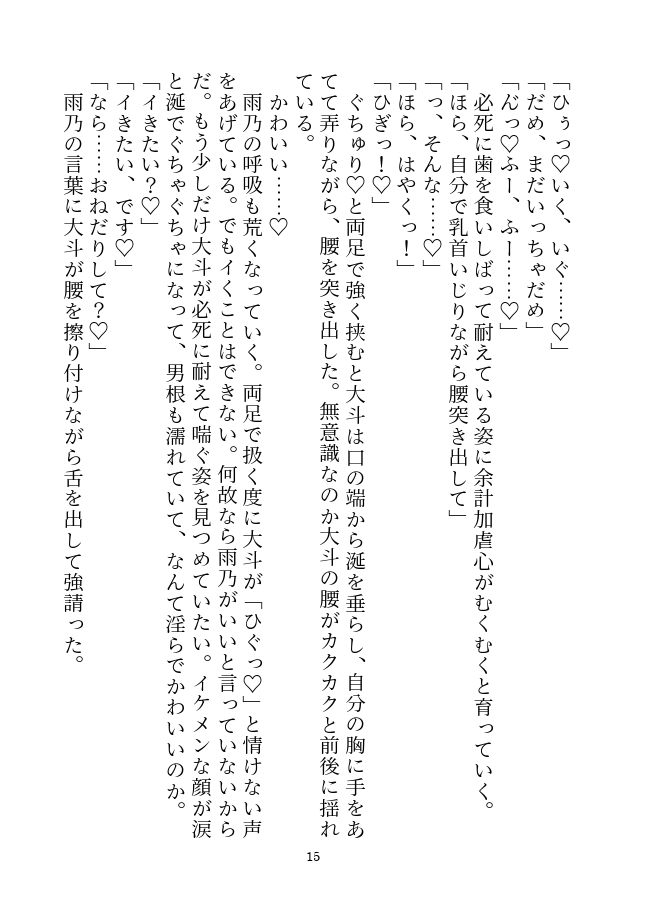 「ひぅっ♡いく、いぐ……♡」
「だめ、まだいっちゃだめ」
「んっ♡ふー、ふー……♡」
　必死に歯を食いしばって耐えている姿に余計加虐心がむくむくと育っていく。
「ほら、自分で乳首いじりながら腰突き出して」
「っ、そんな……♡」
「ほら、はやくっ！」
「ひぎっ！♡」
　ぐちゅり♡と両足で強く挟むと大斗は口の端から涎を垂らし、自分の胸に手をあ
てて弄りながら、腰を突き出した。無意識なのか大斗の腰がカクカクと前後に揺れ
ている。
　かわいい……♡
　雨乃の呼吸も荒くなっていく。両足で扱く度に大斗が「ひぐっ♡」と情けない声
をあげている。でもイくことはできない。何故なら雨乃がいいと言っていないから
だ。もう少しだけ大斗が必死に耐えて喘ぐ姿を見つめていたい。イケメンな顔が涙
と涎でぐちゃぐちゃになって、男根も濡れていて、なんて淫らでかわいいのか。
「イきたい？♡」
「イきたい、です♡」
「なら……おねだりして？♡」
　雨乃の言葉に大斗が腰を擦り付けながら舌を出して強請った。
15